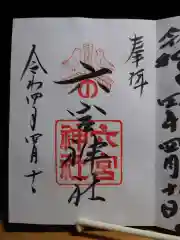 奉拝
六宮神社
六宮
神社
令和四年四月十日
令和四年四月十日